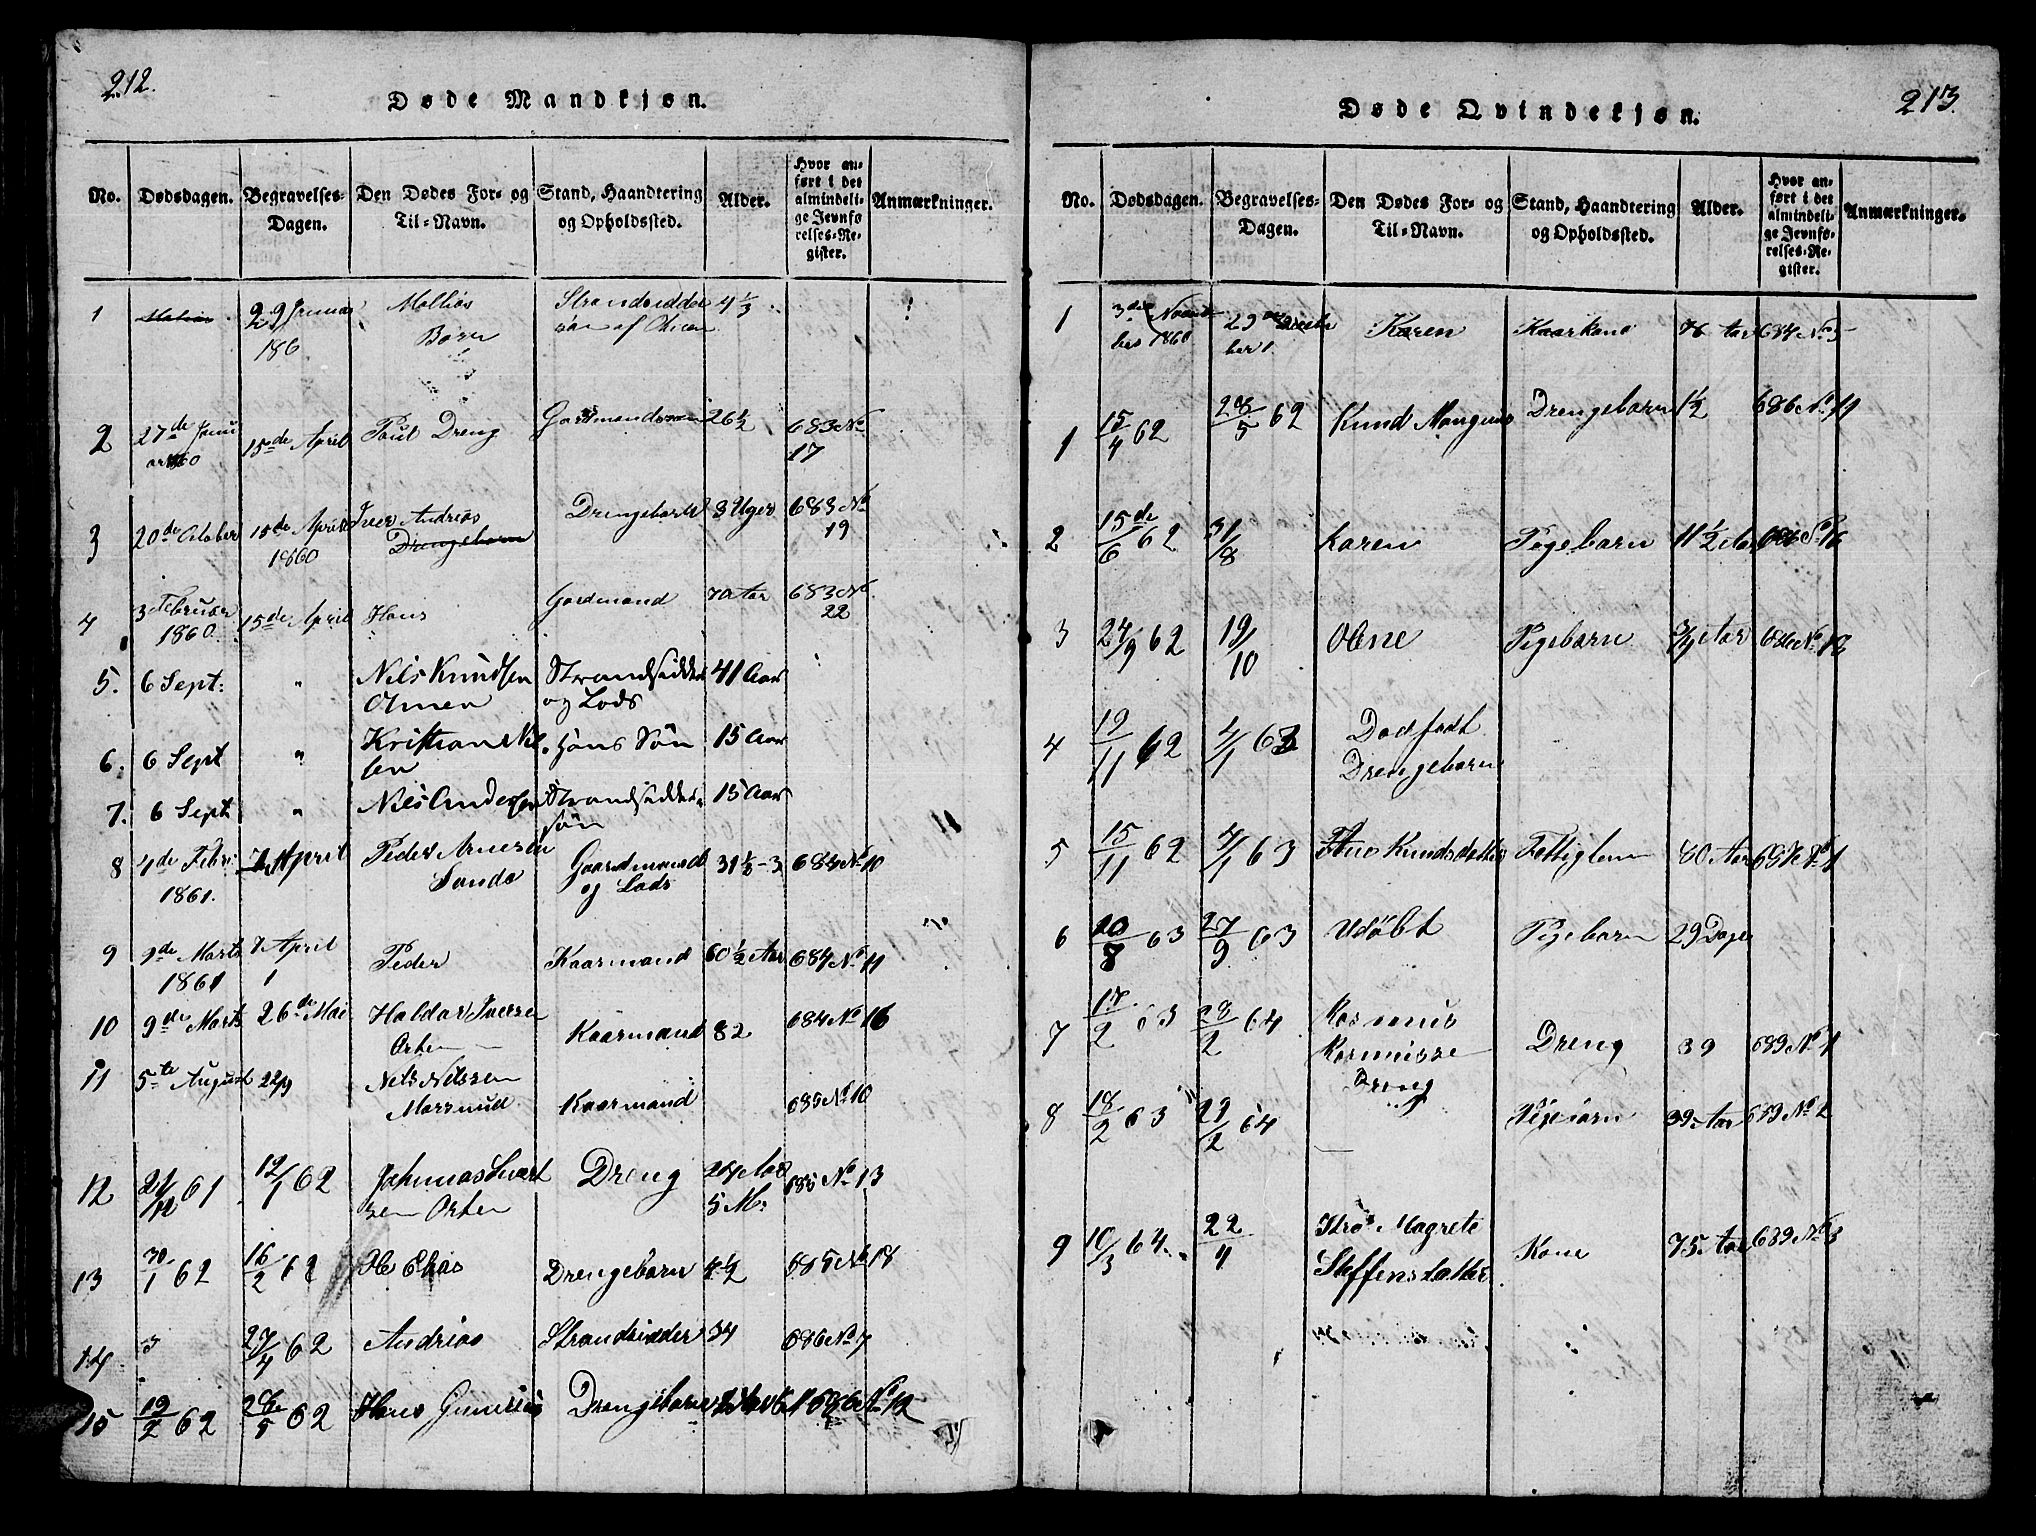 212.
Døde Mandkjøn.
No. Dødsdagen. Begravelses-Dagen. Den Dødes For- og Til-Navn. Stand, Haandtering og Opholdssted. Alder. Hvor anført i det almindelige Jevnførelses-Register. Anmærkninger.
1 29 Januar 186 Mathias Børn Strandsidder 4 1/3
2 27de Januar 1860 15de April Poul Dreng Gaardmandssøn 26 1/2 683 No 17
3 20de October 15de April 1860 Iver Andrias Drengebarn Drengebarn 3 Uger 683 No 19
4 3 Februar 1860 15de April Hans Gardmand 70 Aar 683 No 22
5. 6 Sept: " Nils Knudsen Strandsidder og Lods 41 Aar
6. 6 Sept " Kristian Nilsen Hans Søn 15 Aar
7. 6 Sept " Nils Andersen Strandsidders Søn 15 Aar
8 4de Febr: 1861. 7 April Peder Arnesen Sandø Gaardmand og Lods 31 1/2 - 3 684 No 10
9 1de Marts 1861 7 April 1 Peder Kaarmand 60 1/2 Aar 684 No 11
10 9de Marts 26de Mai Haldor Iversen Orten Kaarmand 82 684 No 16
11 5te August 22/9 Nels Nelssen Kaarmand 685 No 10
12 61 12/1 62 Johannas Orten Dreng 24 Aar 5 M: 685 No 13
13 30/1 62 16/2 62 Ole Elias Drengebarn 4 1/2 685 No 17
14 3 27/4 62 Andrias Strandsidder 34 686 No 7
15 19/2 62 28/5 62 Hans Drengebarn 686 No 12
213.
Døde Qvindekjøn.
No. Dødsdagen. Begravelses-Dagen. Den Dødes For- og Til-Navn. Stand, Haandtering og Opholdssted. Alder. Hvor anført i det almindelige Jevnførelses-Register. Anmærkninger.
1 3de November 1860 29de Karen Kaarkone 76 Aar 684 No 5
1 15/4 62 28/5 62 Knud Mangnus Drengebarn 1 1/2 686 No 11
2 15de/6 62 31/8 Karen Pigebarn 11 1/2 Aar 686 No 16
3 24/9 62 19/10 Oline Pigebarn 3/4 Aar 686 No 18
4 19/11 62 4/1 63 Dødfødt Drengebarn
5 15/11 62 4/1 63 Knudsdatter Fattiglem 80 Aar 687 No 1
6 20/8 63 27/9 63 Udøbt Pigebarn 29 Dage
7 17/2 63 28/2 64 Rasmus Rasmusse Dreng Dreng 39 689 No 1
8 18/2 63 29/2 64 Pigebarn 39 Aar 689 No 2
9 10/3 64. 22/4 Magrete Steffensdatter Kone 75 Aar 689 No 3